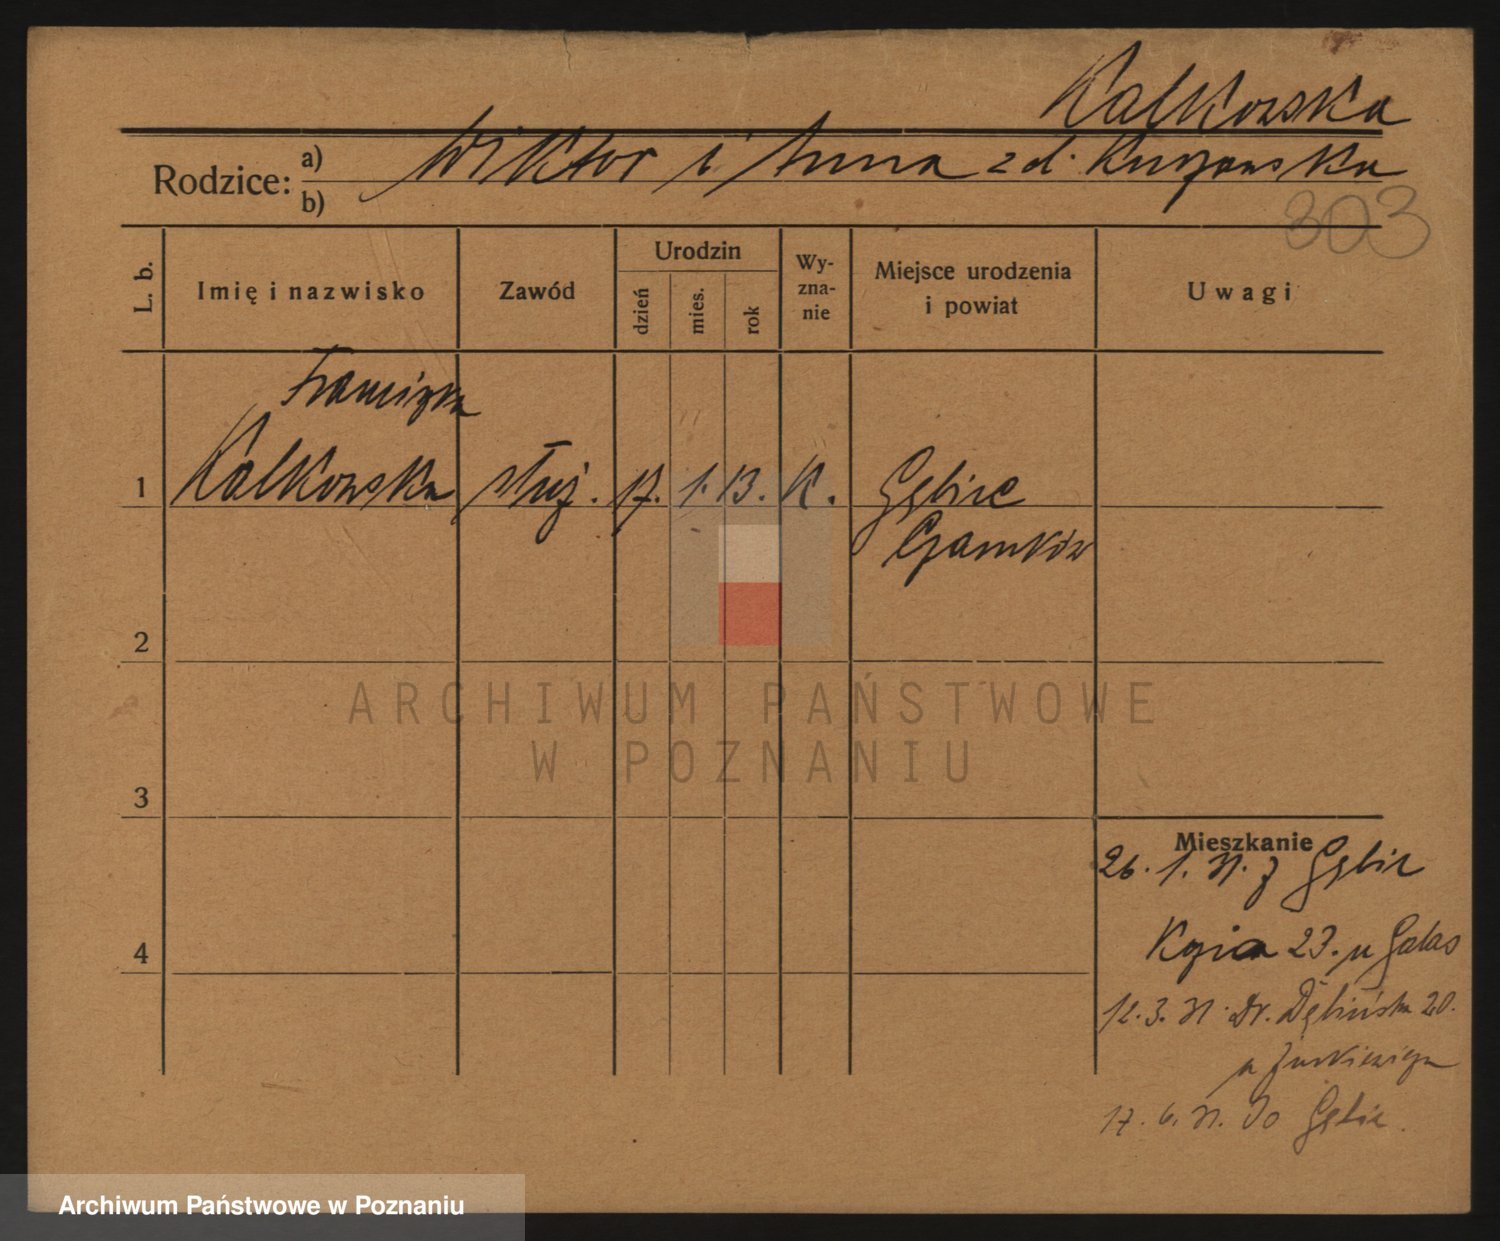 Kalkowska
Rodzice: a) Wiktor i Anna z d.
b)
303
L. b.
Imię i nazwisko
Zawód
Urodzin
dzień
mies.
rok
Wy-
zna-
nie
Miejsce urodzenia
i powiat
Uwagi
Franciszka
1 Kalkowska służ. 17. 1. 13. K. Gębice
Czarnków
2
ARCHIWUM PAŃSTWOWE
W POZNANIU
3
Mieszkanie
26. 1. 31. z Gębic
23. u Galas
4
12. 3. 31. Dr. Dębińska 20.
u Jurkiewicza
17. 6. 31. do Gębic.
Archiwum Państwowe w Poznaniu